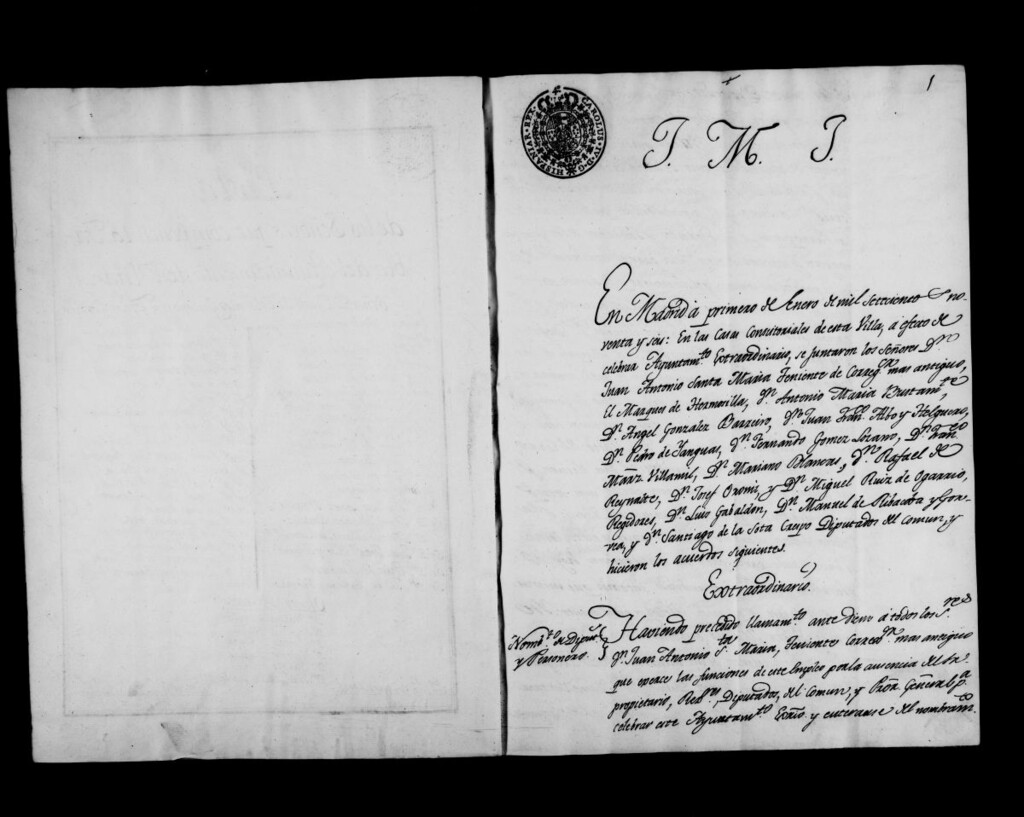 1
CAROLUS IV D. G. HISPANIAR. REX.
J. M. J.
En Madrid à primero de Enero de mil setecientos no-
venta y seis: En las Casas Consistoriales de esta Villa, a efecto de
celebrar Ayuntam.to Extraordinario, se juntaron los Señores D.n
Juan Antonio Santa Maria Teniente de Correg.or mas antiguo,
El Marques de Hermosilla, D.n Antonio Maria Bustam.te
D.n Angel Gonzalez Barreiro, D.n Juan Fran.co Albo y Helguero,
D.n Pedro de Yanguas, D.n Fernando Gomez Lozano, D.n Fran.co
Mārz Villamil, D.n Mariano Blancas, D.n Rafael de
Reynalte, D.n Josef Oromi, y D.n Miguel Ruiz de Ogarrio,
Regidores, D.n Luis Gabaldon, D.n Manuel de Ribacoba y Gor-
vea, y D.n Santiago de la Sota Crespo Diputados del Comun, y
hicieron los acuerdos siguientes.
Extraordinario.
Nomb.to de Diput.s
y Personero.
Haviendo precedido llamam.to ante diem à todos los S.res
D.n Juan Antonio S.ta Maria, Teniente Correx.or mas antiguo
que exerce las funciones de este Empleo por la ausencia del Sr.
propietario, Reg.res, Diputados, del Comun, y Pror. General p.a
celebrar este Ayuntam.to Extr̄io y enterarse del nombram.to